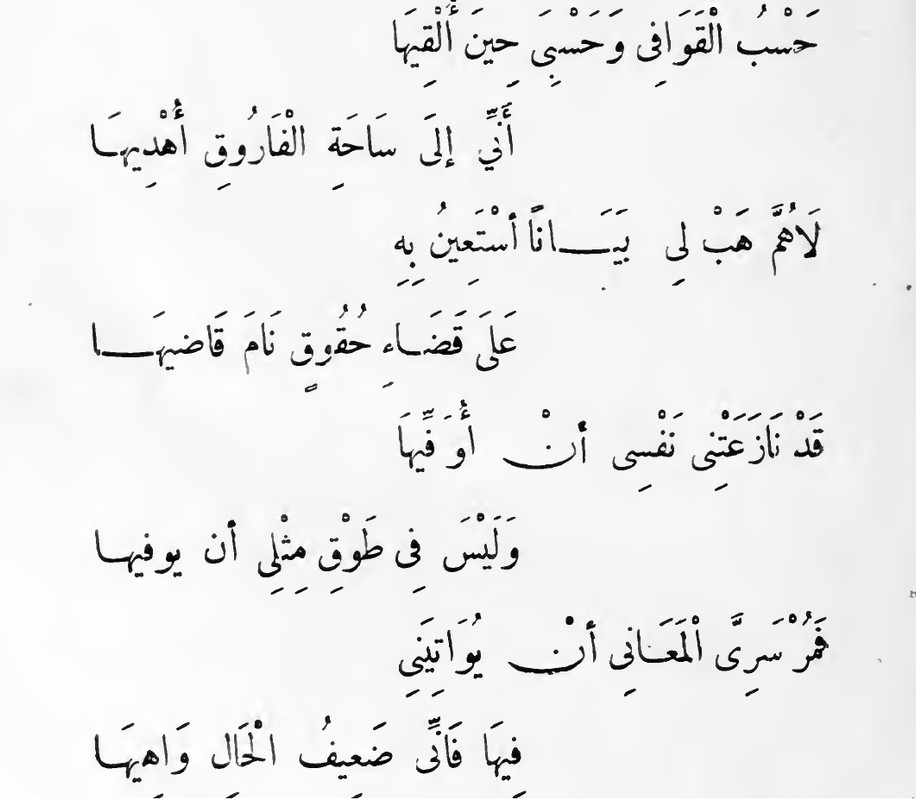 حَسْبُ الْقَوَافِى وَحَسْبِىَ حِينَ أُلْقِيهَا
أَنِّي إِلَى سَاحَةِ الْفَارُوقِ أُهْدِيهَا
لَاهُمَّ هَبْ لِى بَيَـــانًا أسْتَعِينُ بِهِ
عَلَى قَضَـاءِ حُقُوقٍ نَامَ قَاضيهَـــا
قَدْ نَازَعَتْنِى نَفْسِى أنْ أُوَفِّيهَا
وَلَيْسَ فِى طَوْقِ مِثْلِى أن يوفيهـا
فَمُرْ سَرِىَّ الْمَعَـانِى أنْ يُوَاتِيَنِى
فِيهَا فَانِّى ضَعِيفُ الْحَالِ وَاهِيهَـا